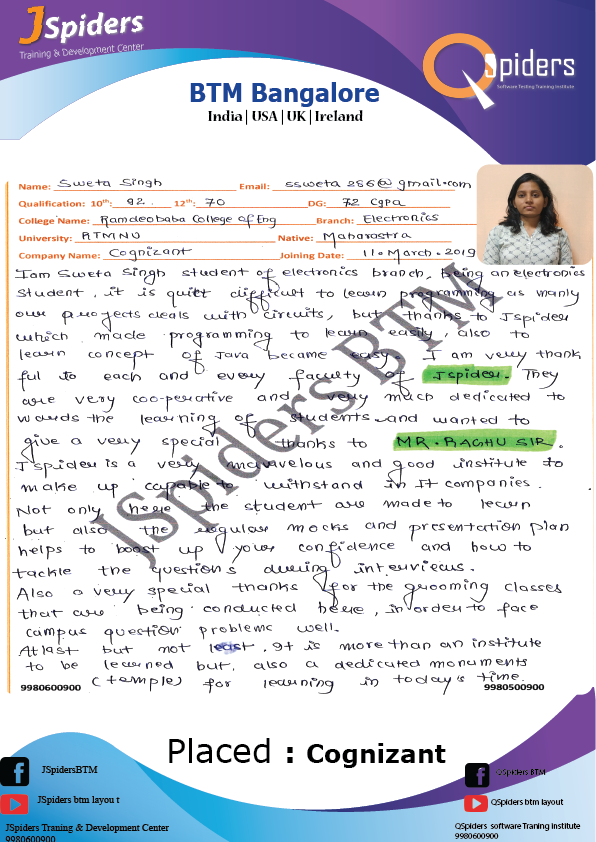 JSpiders
Training & Development Center
QSpiders
Software Testing Training Institute
BTM Bangalore
India | USA | UK | Ireland
Name: Sweta Singh Email: ssweta286@gmail.com
Qualification: 10th: 92. 12th: 70 DG: 72 Cgpa
College Name: Ramdeobaba College of Eng Branch: Electronics
University: RTMNU Native: Maharastra
Company Name: Cognizant Joining Date: 11. March. 2019
I am Sweta Singh student of electronics branch, being an electronics
student, it is quitt difficult to learn programming as manly
our projects deals with circuits, but thanks to Jspider
which made programming to learn easily, also to
learn concept of Java became easy. I am very thank
ful to each and every faculty of Jspider. They
are very coo-perative and very much dedicated to
words the learning of students and wanted to
give a very special thanks to MR. RAGHU SIR.
Jspider is a very marvelous and good institute to
make up capable to withstand in It companies.
Not only here the student are made to learn
but also the regular mocks and presentation plan
helps to boost up your confidence and how to
tackle the questions during interviews.
Also a very special thanks for the grooming classes
that are being conducted here, in order to face
campus question problems well.
At last but not least, It is more than an institute
to be learned but also a dedicated monuments
(temple) for learning in today's time.
9980600900 9980500900
JSpiders BTM
Placed : Cognizant
JSpidersBTM
JSpiders btm layou t
JSpiders Traning & Development Center
9980600900
QSpiders BTM
QSpiders btm layout
QSpiders software Traning institute
9980600900